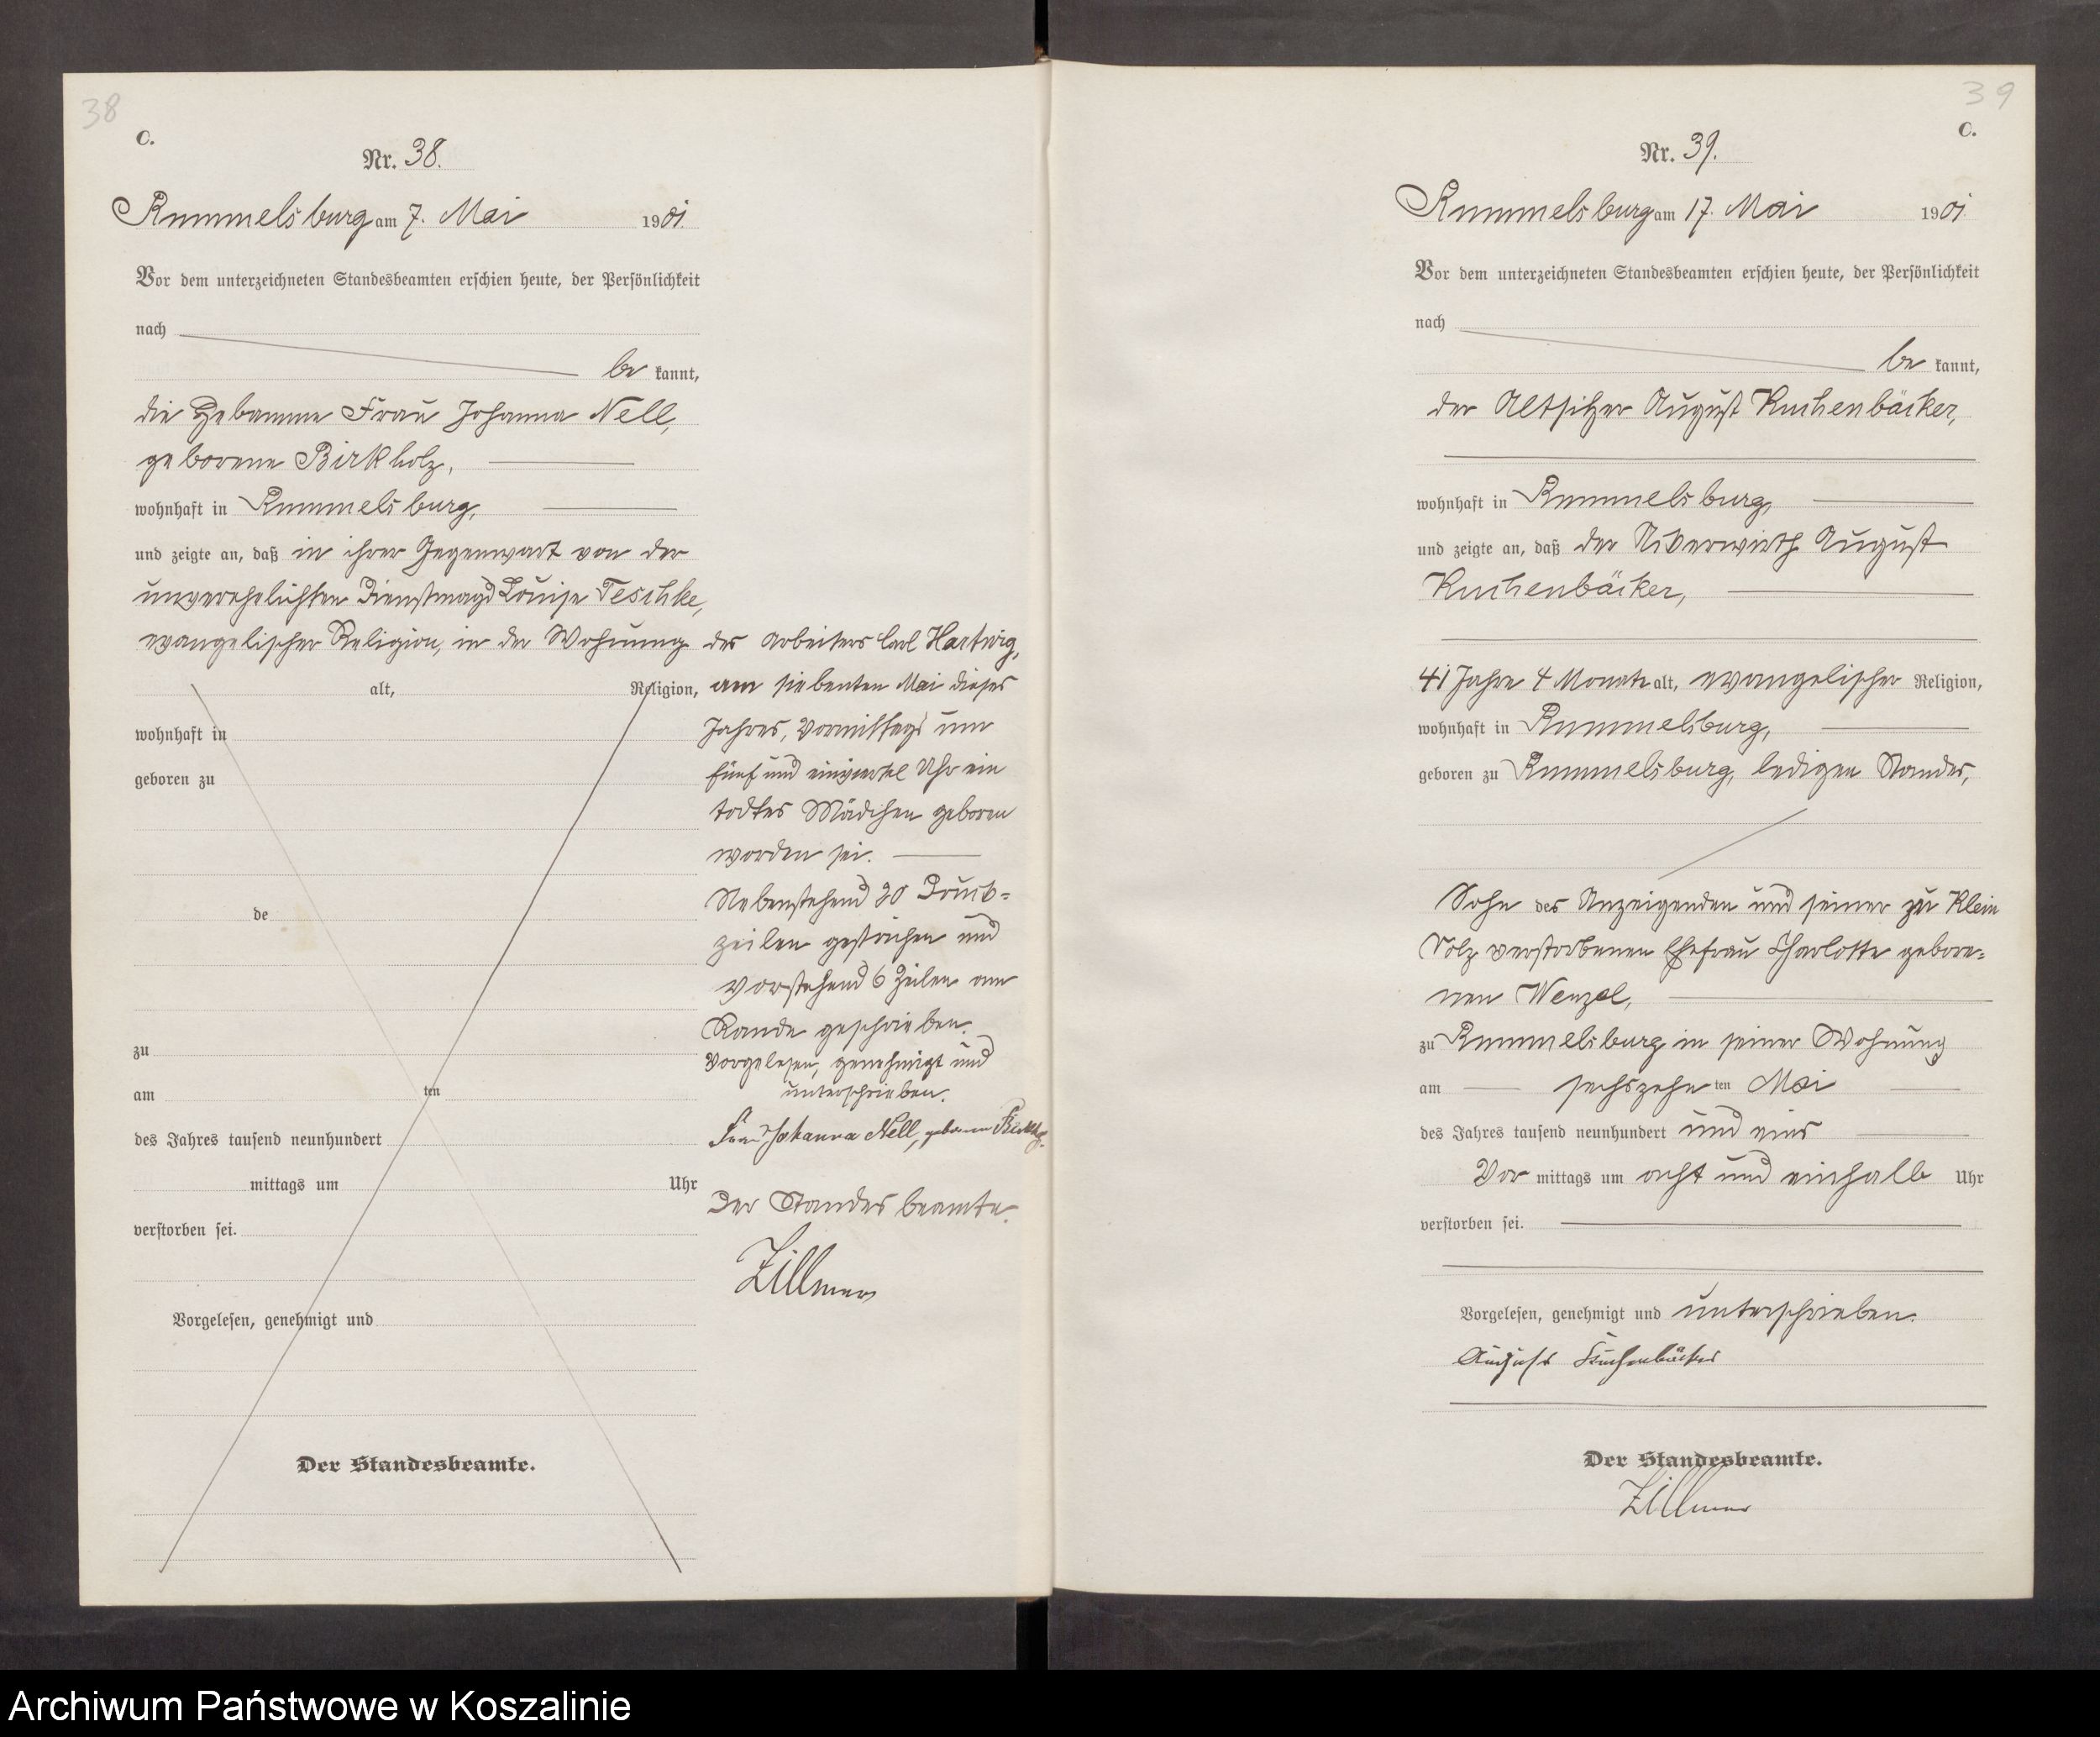 38
C.
Nr. 38.
Rummelsburg am 7. Mai 1901.
Vor dem unterzeichneten Standesbeamten erschien heute, der Persönlichkeit
nach
be kannt,
die Hebamme Frau Johanna Nell,
geborene Birkholz,
wohnhaft in Rummelsburg,
und zeigte an, daß in ihrer Gegenwart von der
unverehelichten Dienstmagd Louise Teschke,
evangelischer Religion, in der Wohnung des Arbeiters Carl Hartwig,
alt, Religion,
wohnhaft in
geboren zu
de
zu
am ten
des Jahres tausend neunhundert
mittags um Uhr
verstorben sei.
Vorgelesen, genehmigt und
Der Standesbeamte.
am siebenten Mai dieses
Jahres, Vormittags um
fünf und einviertel Uhr ein
todtes Mädchen geboren
worden sei.
Nebenstehend 20 Druck-
zeilen gestrichen und
vorstehend 6 Zeilen am
Rande geschrieben.
Vorgelesen, genehmigt und
unterschrieben.
Frau Johanna Nell, geborene Birkholz.
Der Standesbeamte.
Zillmer
39
C.
Nr. 39.
Rummelsburg am 17. Mai 1901
Vor dem unterzeichneten Standesbeamten erschien heute, der Persönlichkeit
nach
be kannt,
der Altsitzer August Kuchenbäcker,
wohnhaft in Rummelsburg,
und zeigte an, daß der August
Kuchenbäcker,
41 Jahre 4 Monate alt, evangelischer Religion,
wohnhaft in Rummelsburg,
geboren zu Rummelsburg, ledigen Standes,
Sohn des Anzeigenden und seiner zu Klein
Volz verstorbenen Ehefrau Charlotte gebore-
nen Wenzel,
zu Rummelsburg in seiner Wohnung
am sechszehn ten Mai
des Jahres tausend neunhundert und eins
Vor mittags um acht und einhalb Uhr
verstorben sei.
Vorgelesen, genehmigt und unterschrieben.
August Kuchenbäcker
Der Standesbeamte.
Zillmer
Archiwum Państwowe w Koszalinie